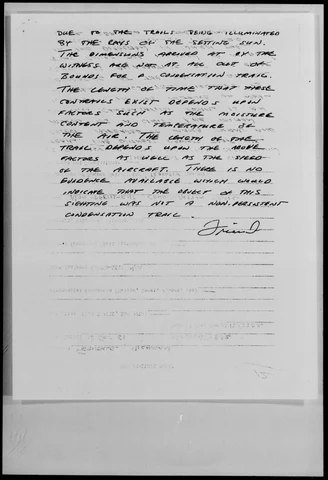 DUE TO THE TRAILS BEING ILLUMINATED
BY THE RAYS OF THE SETTING SUN.
THE DIMENSIONS ARRIVED AT BY THE
WITNESS ARE NOT AT ALL OUT OF
BOUNDS FOR A CONDENSATION TRAIL.
THE LENGTH OF TIME THAT THESE
CONTRAILS EXIST DEPENDS UPON
FACTORS SUCH AS THE MOISTURE
CONTENT AND TEMPERATURE OF
THE AIR. THE LENGTH OF THE
TRAIL DEPENDS UPON THE ABOVE
FACTORS AS WELL AS THE SPEED
OF THE AIRCRAFT. THERE IS NO
EVIDENCE AVAILABLE WHICH WOULD
INDICATE THAT THE OBJECT OF THIS
SIGHTING WAS NOT A NON-PERSISTENT
CONDENSATION TRAIL.
Friend